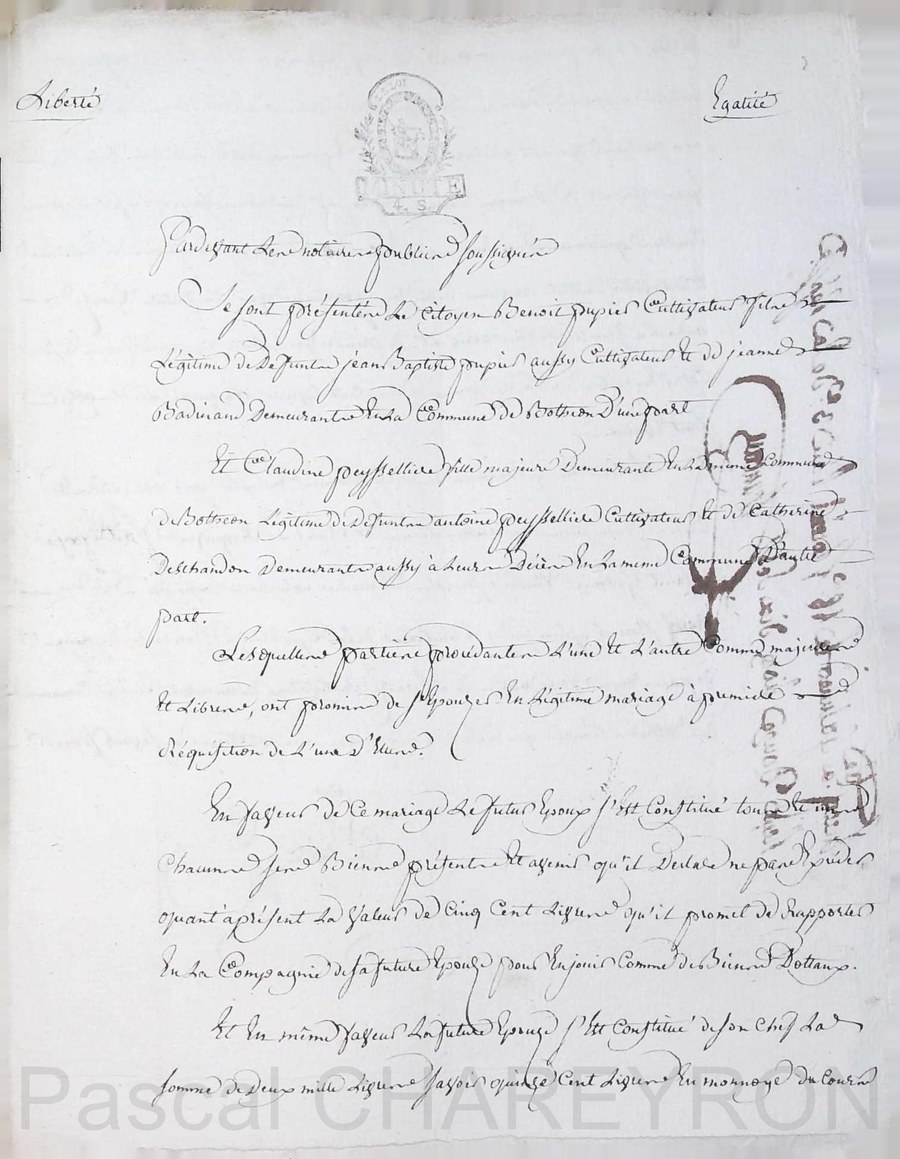 Liberté
Egalité
LA LOI
MINUTE
4. S.
Pardevant Les notaires publics soussignés
Se sont présentés Le Citoyen Benoit pupier Cultivateur fils
Légitime de Defunts jean Baptiste pupier aussy Cultivateur Et de jeanne
Badinand Demeurants En La Commune de Bothéon D'une part
Et Claudine peyssellier fille majeure Demeurante En La même Commune
de Bothéon Légitime de Defunts antoine peyssellier Cultivateur Et de Catherine
Deschandon Demeurants aussy à Leurs Décès En La même Commune D'autre
part.
Lesquelles parties procédantes L'une Et L'autre Comme majeures
Et Libres, ont promis de s'Epouzer En Légitime mariage à première
Réquisition de L'une D'Elles.
En faveur de Ce mariage Le futur Epoux s'Est Constitué tous Et uns
Chacuns ses Biens présents Et avenir qu'il Declare ne pas Excéder
quant àprésent La valeur de Cinq Cent Livres qu'il promet de Rapporter
En La Compagnie de sa future Epouze pour En jouir Comme de Biens Dottaux.
Et En même faveur La future Epouze s'Est Constitué de son Chef La
somme de Deux mille Livres savoir quinze Cent Livres En monnoye du Cours
Pascal CHAREYRON